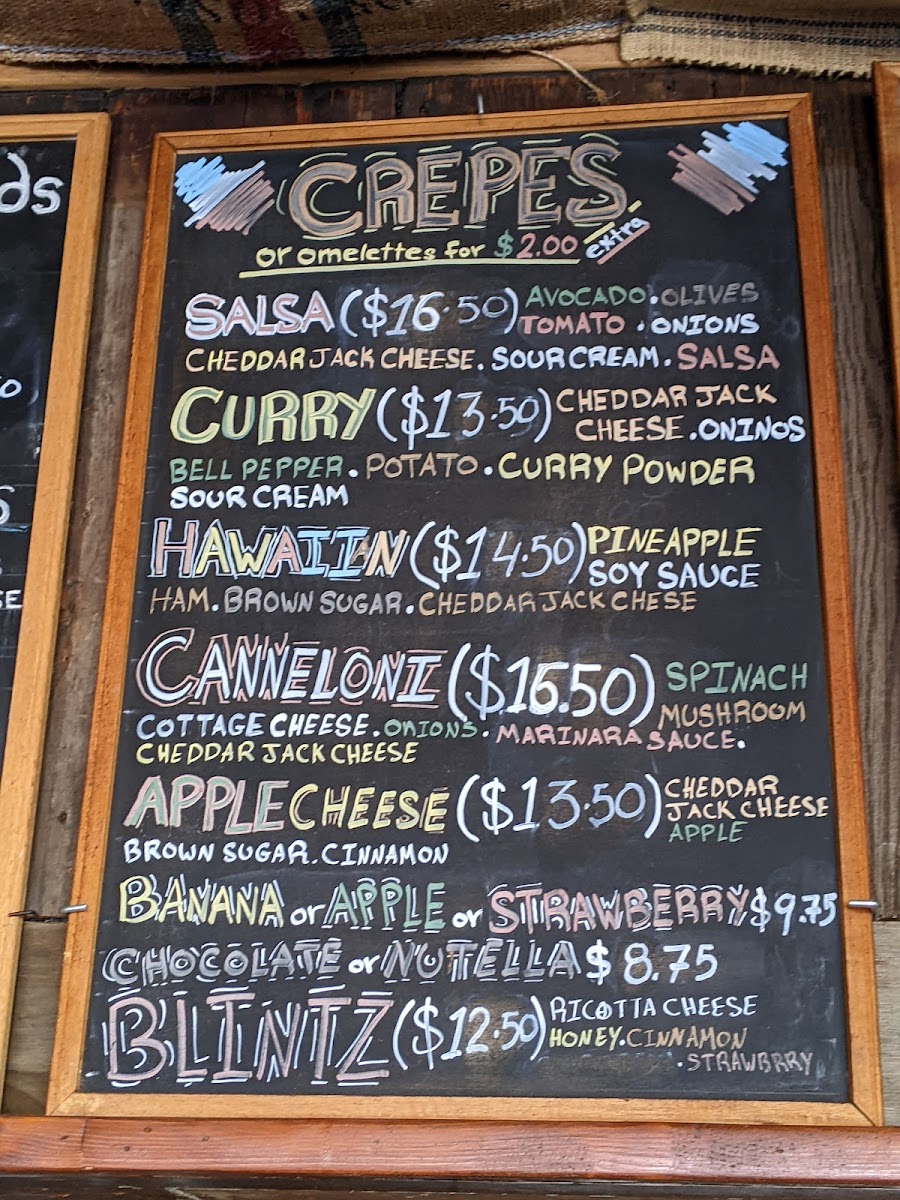 ds
CREPES
or omelettes for $2.00 extra
SALSA ($16.50) AVOCADO. OLIVES
TOMATO . ONIONS
CHEDDAR JACK CHEESE. SOUR CREAM. SALSA
CURRY ($13.50) CHEDDAR JACK
CHEESE . ONINOS
BELL PEPPER. POTATO. CURRY POWDER
SOUR CREAM
HAWAIIAN ($14.50) PINEAPPLE
SOY SAUCE
HAM. BROWN SUGAR. CHEDDAR JACK CHESE
CANNELONI ($16.50) SPINACH
MUSHROOM
COTTAGE CHEESE. ONIONS. MARINARA SAUCE.
CHEDDAR JACK CHEESE
APPLE CHEESE ($13.50) CHEDDAR
JACK CHEESE
APPLE
BROWN SUGAR. CINNAMON
BANANA or APPLE or STRAWBERRY $9.75
CHOCOLATE or NUTELLA $8.75
BLINTZ ($12.50) RICOTTA CHEESE
HONEY. CINNAMON
. STRAWBRRY